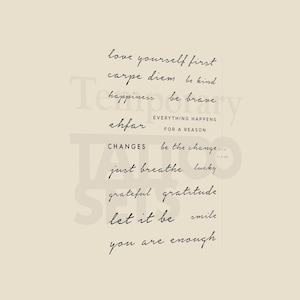 love yourself first
carpe diem be kind
happiness be brave
Temporary
EVERYTHING HAPPENS
FOR A REASON
ehfar
CHANGES be the change
TATTOO
just breathe lucky
grateful gratitude
SETS
let it be smile
you are enough